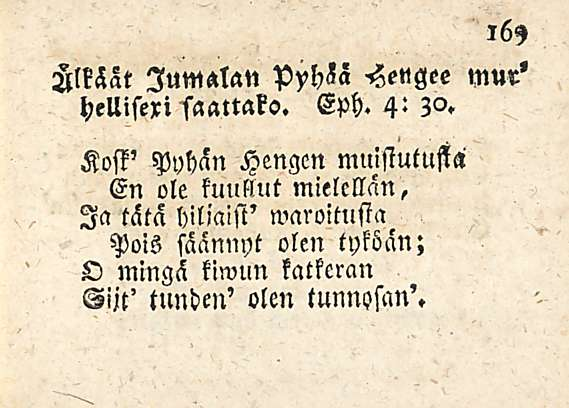 169
Älkäät Jumalan Pyhää Hengee mur'
hellisexi saattako. Eph. 4: 30.
Kosk' Pyhän Hengen muistutusta
En ole kuullut mielellän,
Ja tätä hiljaist' waroitusta
Pois säännyt olen tyköän;
O mingä kiwun katkeran
Sijt' tunden' olen tunnosan'.